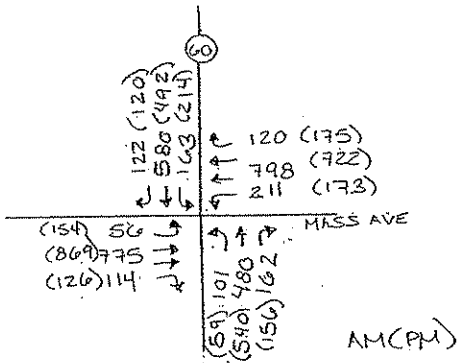 60
122 (120)
580 (492)
163 (214)
120 (175)
798 (722)
211 (173)
MASS AVE
(154) 56
(869) 775
(126) 114
(59) 101
(540) 480
(156) 162
AM (PM)